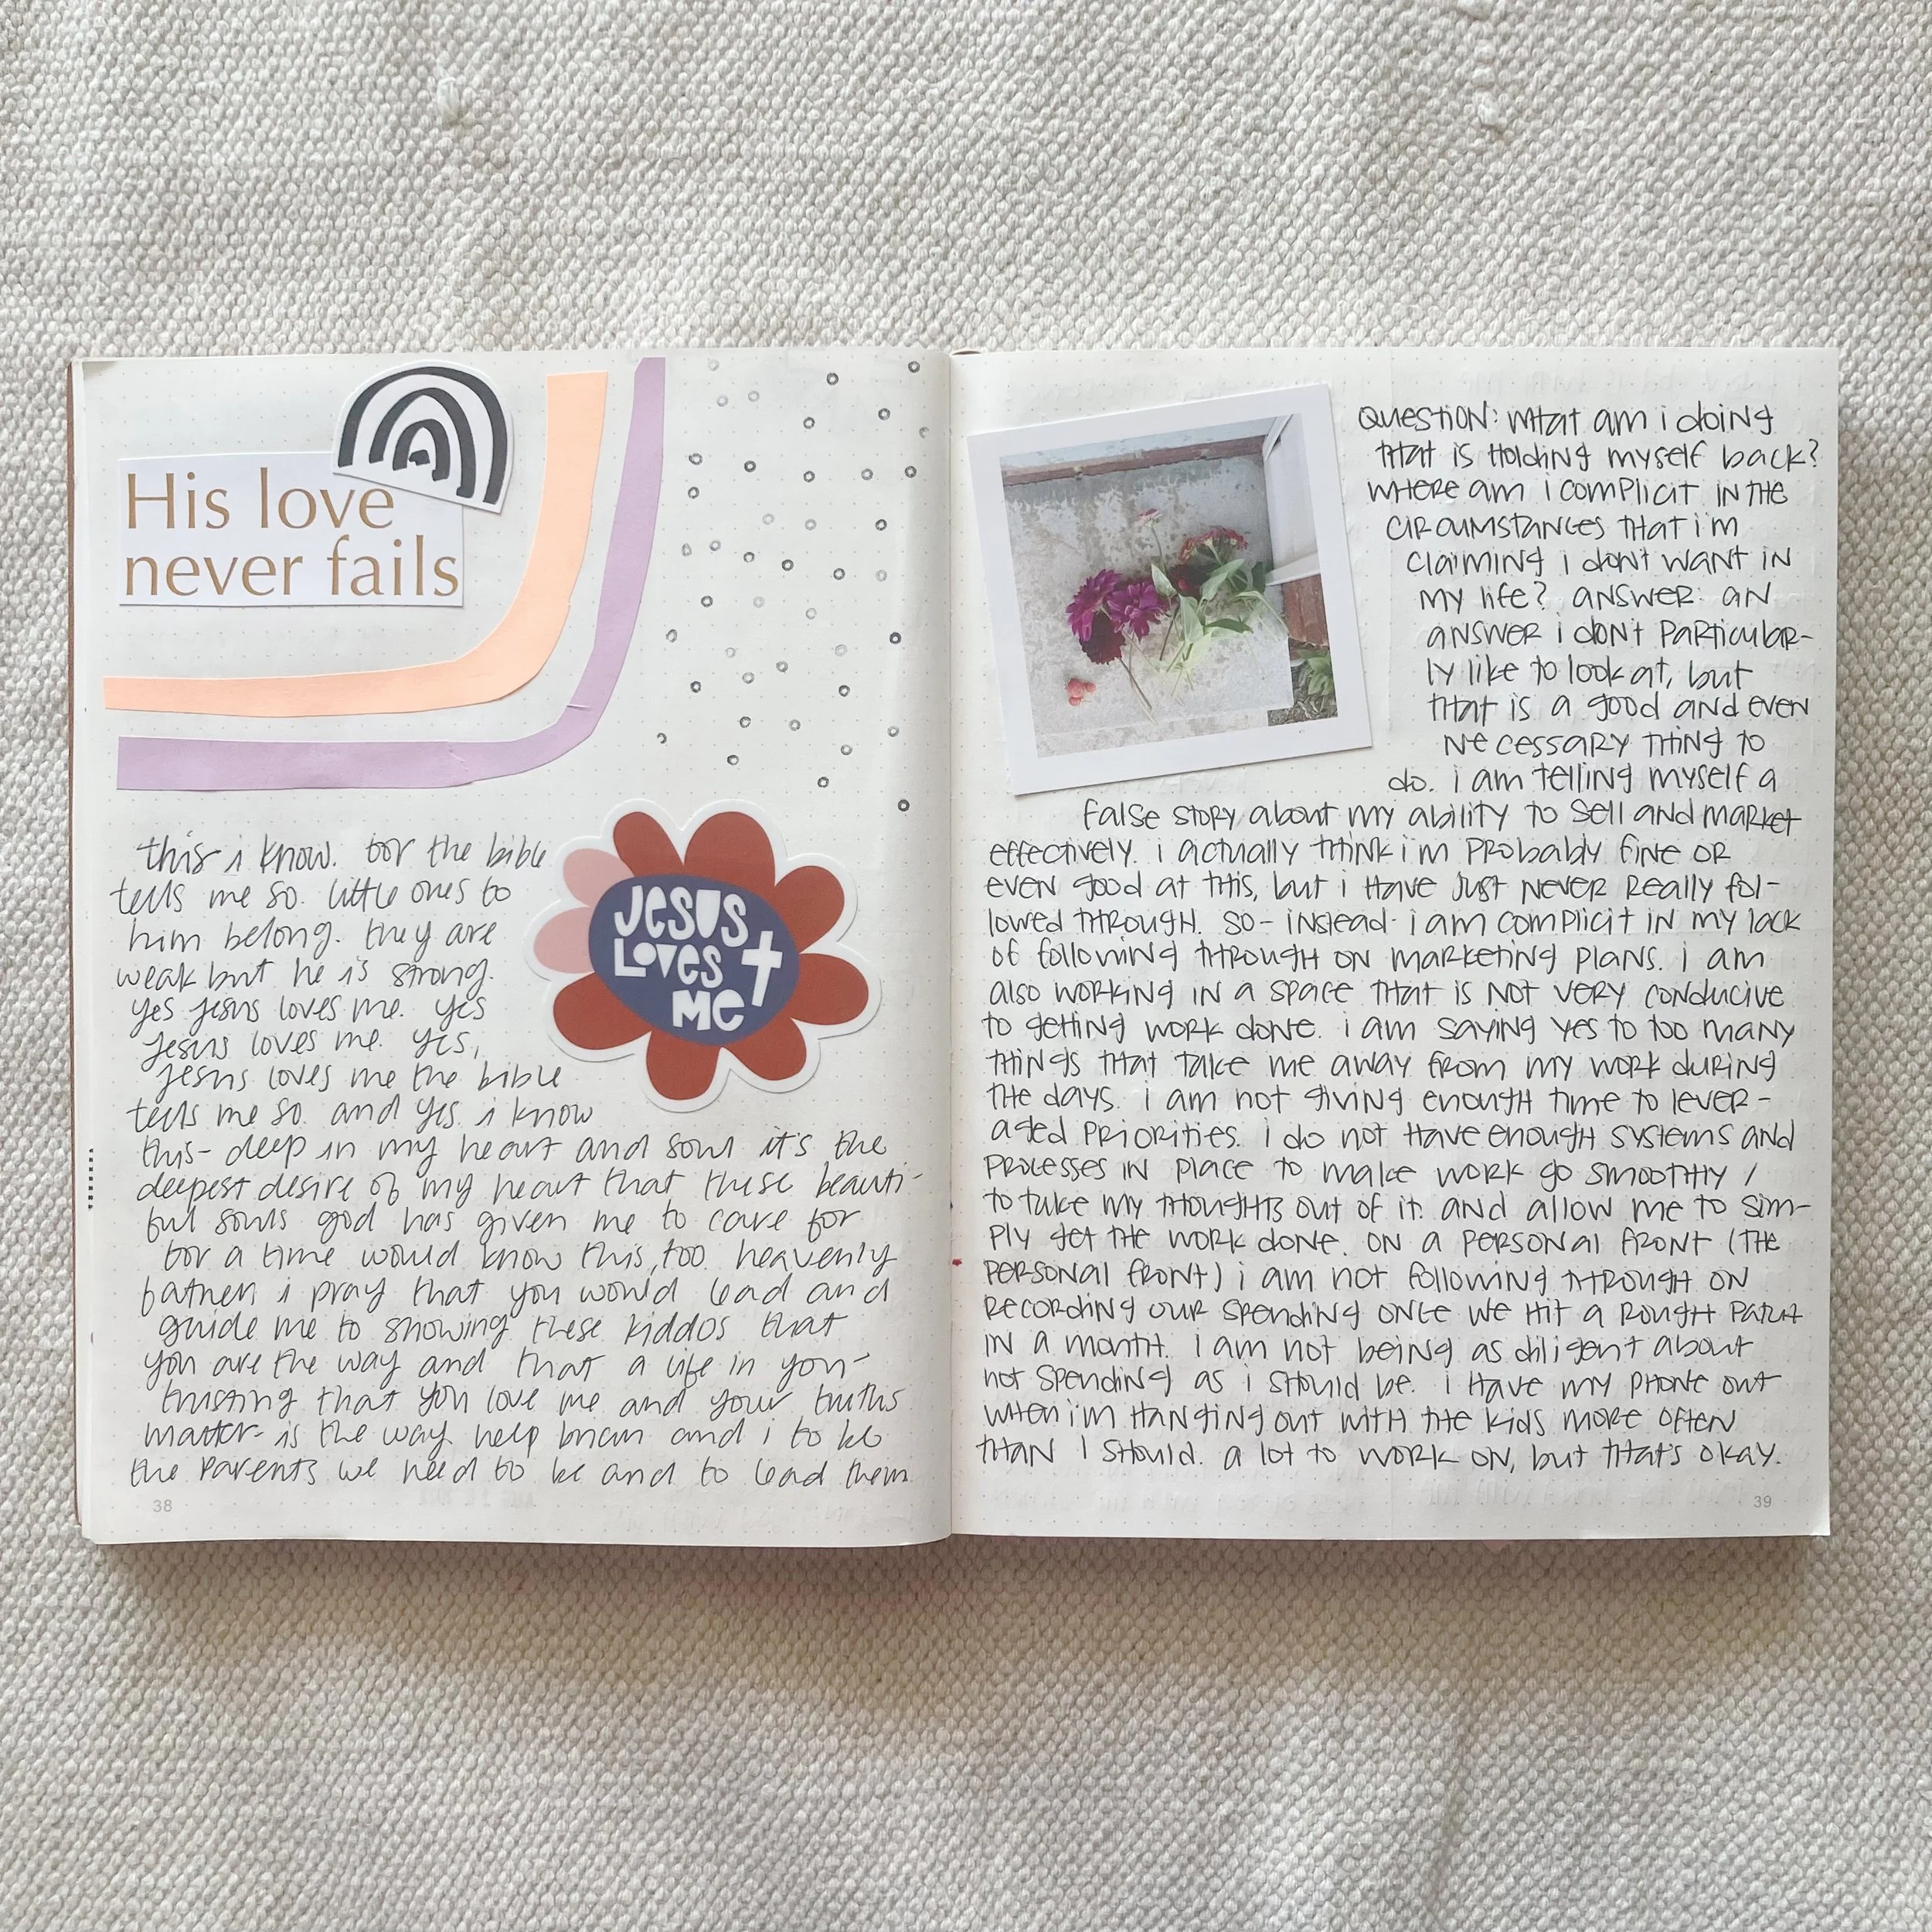 His love
never fails
this i know. for the bible
tells me so. little ones to
him belong. they are
weak but he is strong.
yes jesus loves me. yes
jesus loves me. yes,
jesus loves me the bible
tells me so. and yes. i know
this- deep in my heart and soul it's the
deepest desire of my heart that these beauti-
ful souls god has given me to care for
for a time would know this, too. heavenly
father i pray that you would lead and
guide me to showing these kiddos that
you are the way and that a life in you-
trusting that you love me and your truths
matter- is the way. help brian and i to be
the parents we need to be and to lead them
JESUS
LOVES
ME
38
QUESTION: WHAT am i doing
THAT is HOLDING myself back?
WHERE am i COMPLICIT IN THE
CIRCUMSTANCES THAT i'm
CLAIMING i don't WANT IN
MY life? ANSWER: AN
ANSWER i DON'T PARTICULAR-
ly like to look at, but
THAT is a good and even
NECESSARY THING TO
do. i am telling myself a
false STORY about my ability to sell and market
effectively. i actually THINK i'm PROBABLY fine OR
EVEN good at THIS, but i HAVE JUST NEVER REAlly fol-
lowed THROUGH. SO- instead- i am complicit in my lack
of following THROUGH ON MARKETING PLANS. i am
also WORKING IN a space THAT is NOT VERY CONDUCIVE
to getting WORK done. i am SAYING YES to too many
THINGS THAT TAKE ME away from MY WORK during
THE days. i am not giving enough time to lever-
aged PRIORITIES. i do not HAVE enough systems and
PROCESSES IN place to make work go smoothly /
to take MY THOUGHTS OUT of it. and allow me to sim-
ply get THE WORK done. ON a PERSONAL front (THE
PERSONAL front) i am not following THROUGH ON
RECORDING OUR spending once we HIT a ROUGH PATCH
IN a month. i am not being as diligent about
not spending as i SHOULD be. i HAVE my PHONE out
WHEN i'm HANGING out WITH THE kids more often
THAN I SHOULD. a lot to WORK ON, but THAT'S okay.
39